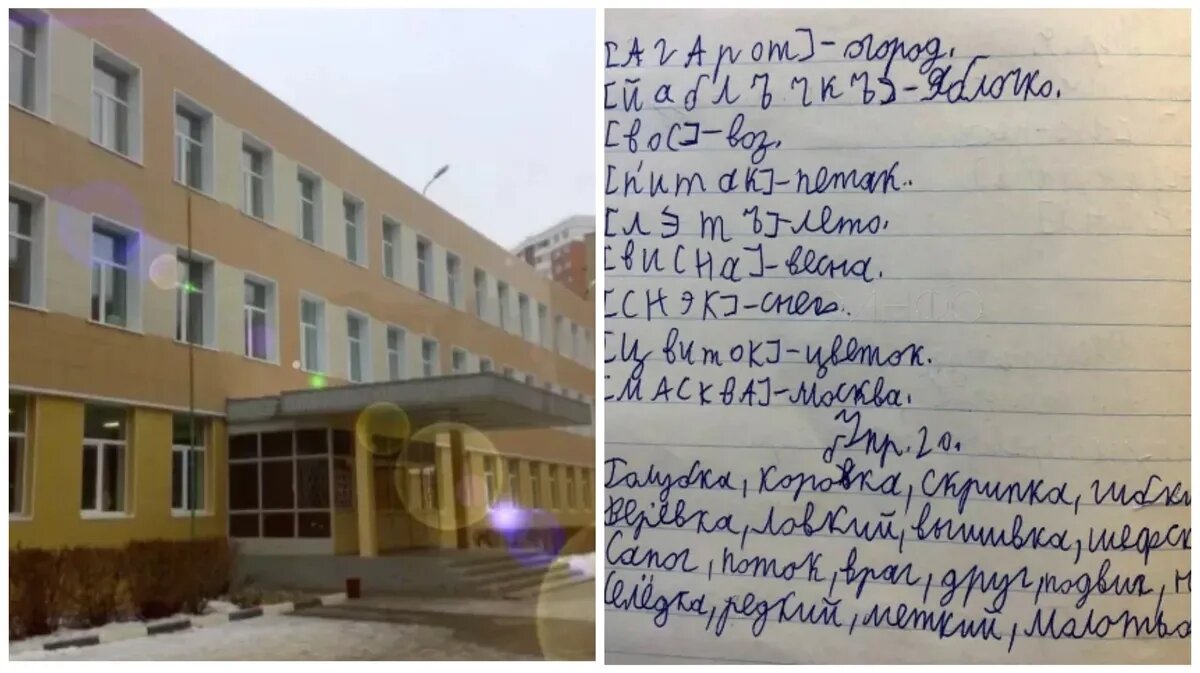 [АгАрот]-огород.
[йаблъчкъ]-Яблочко.
[вос]-воз.
[п'итак]-петак.
[лэтъ]-лето.
[висна]-весна.
[снэк]-снег.
[цвиток]-цветок.
[МАСКВА]-Москва.
Упр. 20.
Голубка, коровка, скрипка, гибки
Верёвка, ловкий, вышивка, шефск
Сапог, поток, враг, друг, подвиг, н
Селёдка, редкий, меткий, Молотьб